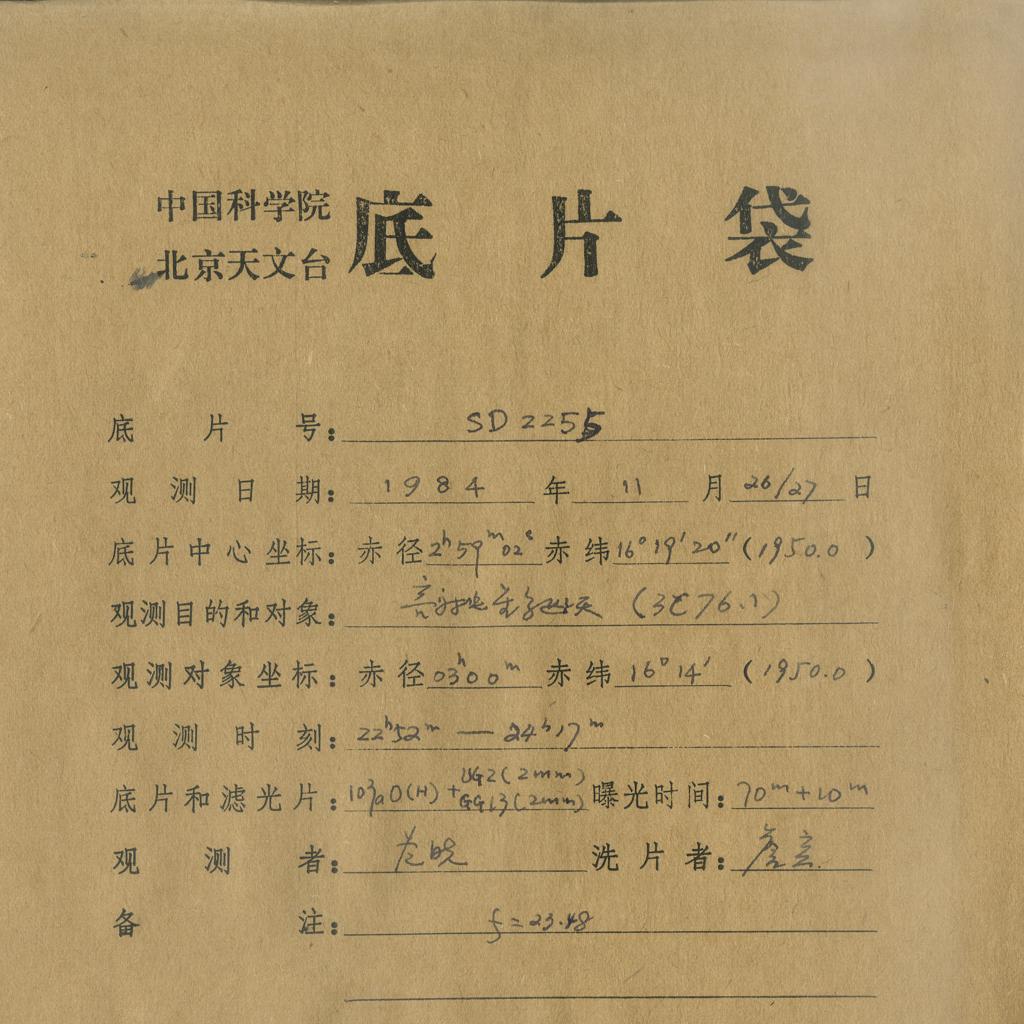 中国科学院
北京天文台
底片袋
底片号: SD2255
观测日期: 1984年 11月 26/27日
底片中心坐标: 赤径 2ʰ59ᵐ02ˢ 赤纬 16°19′20″ (1950.0)
观测目的和对象: (3C76.1)
观测对象坐标: 赤径 03ʰ00ᵐ 赤纬 16°14′ (1950.0)
观测时刻: 22ʰ52ᵐ — 24ʰ17ᵐ
底片和滤光片: 103aO(H) + UG2(2mm) GG13(2mm) 曝光时间: 70ᵐ+10ᵐ
观测者: 洗片者:
备注: f=23.48